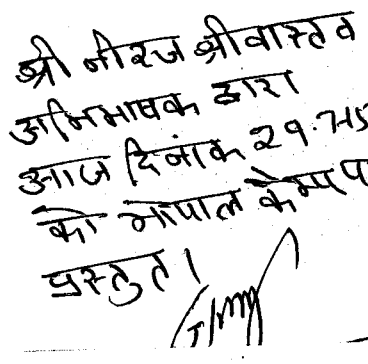 श्री नीरज श्रीवास्तव
अभिभाषक द्वारा
आज दिनांक 29.7.15
को भोपाल कैम्प प
प्रस्तुत।